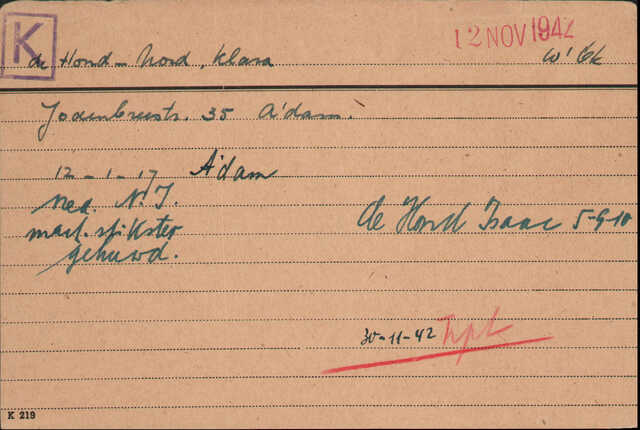 K
12 NOV 1942
de Hond - Nord, Klara
W'bk
Jodenbreestr. 35 A'dam.
12-1-17 A'dam
Ned. N.I.
mach. stikster
gehuwd.
de Hond Isaac 5-9-10
30-11-42
K 219